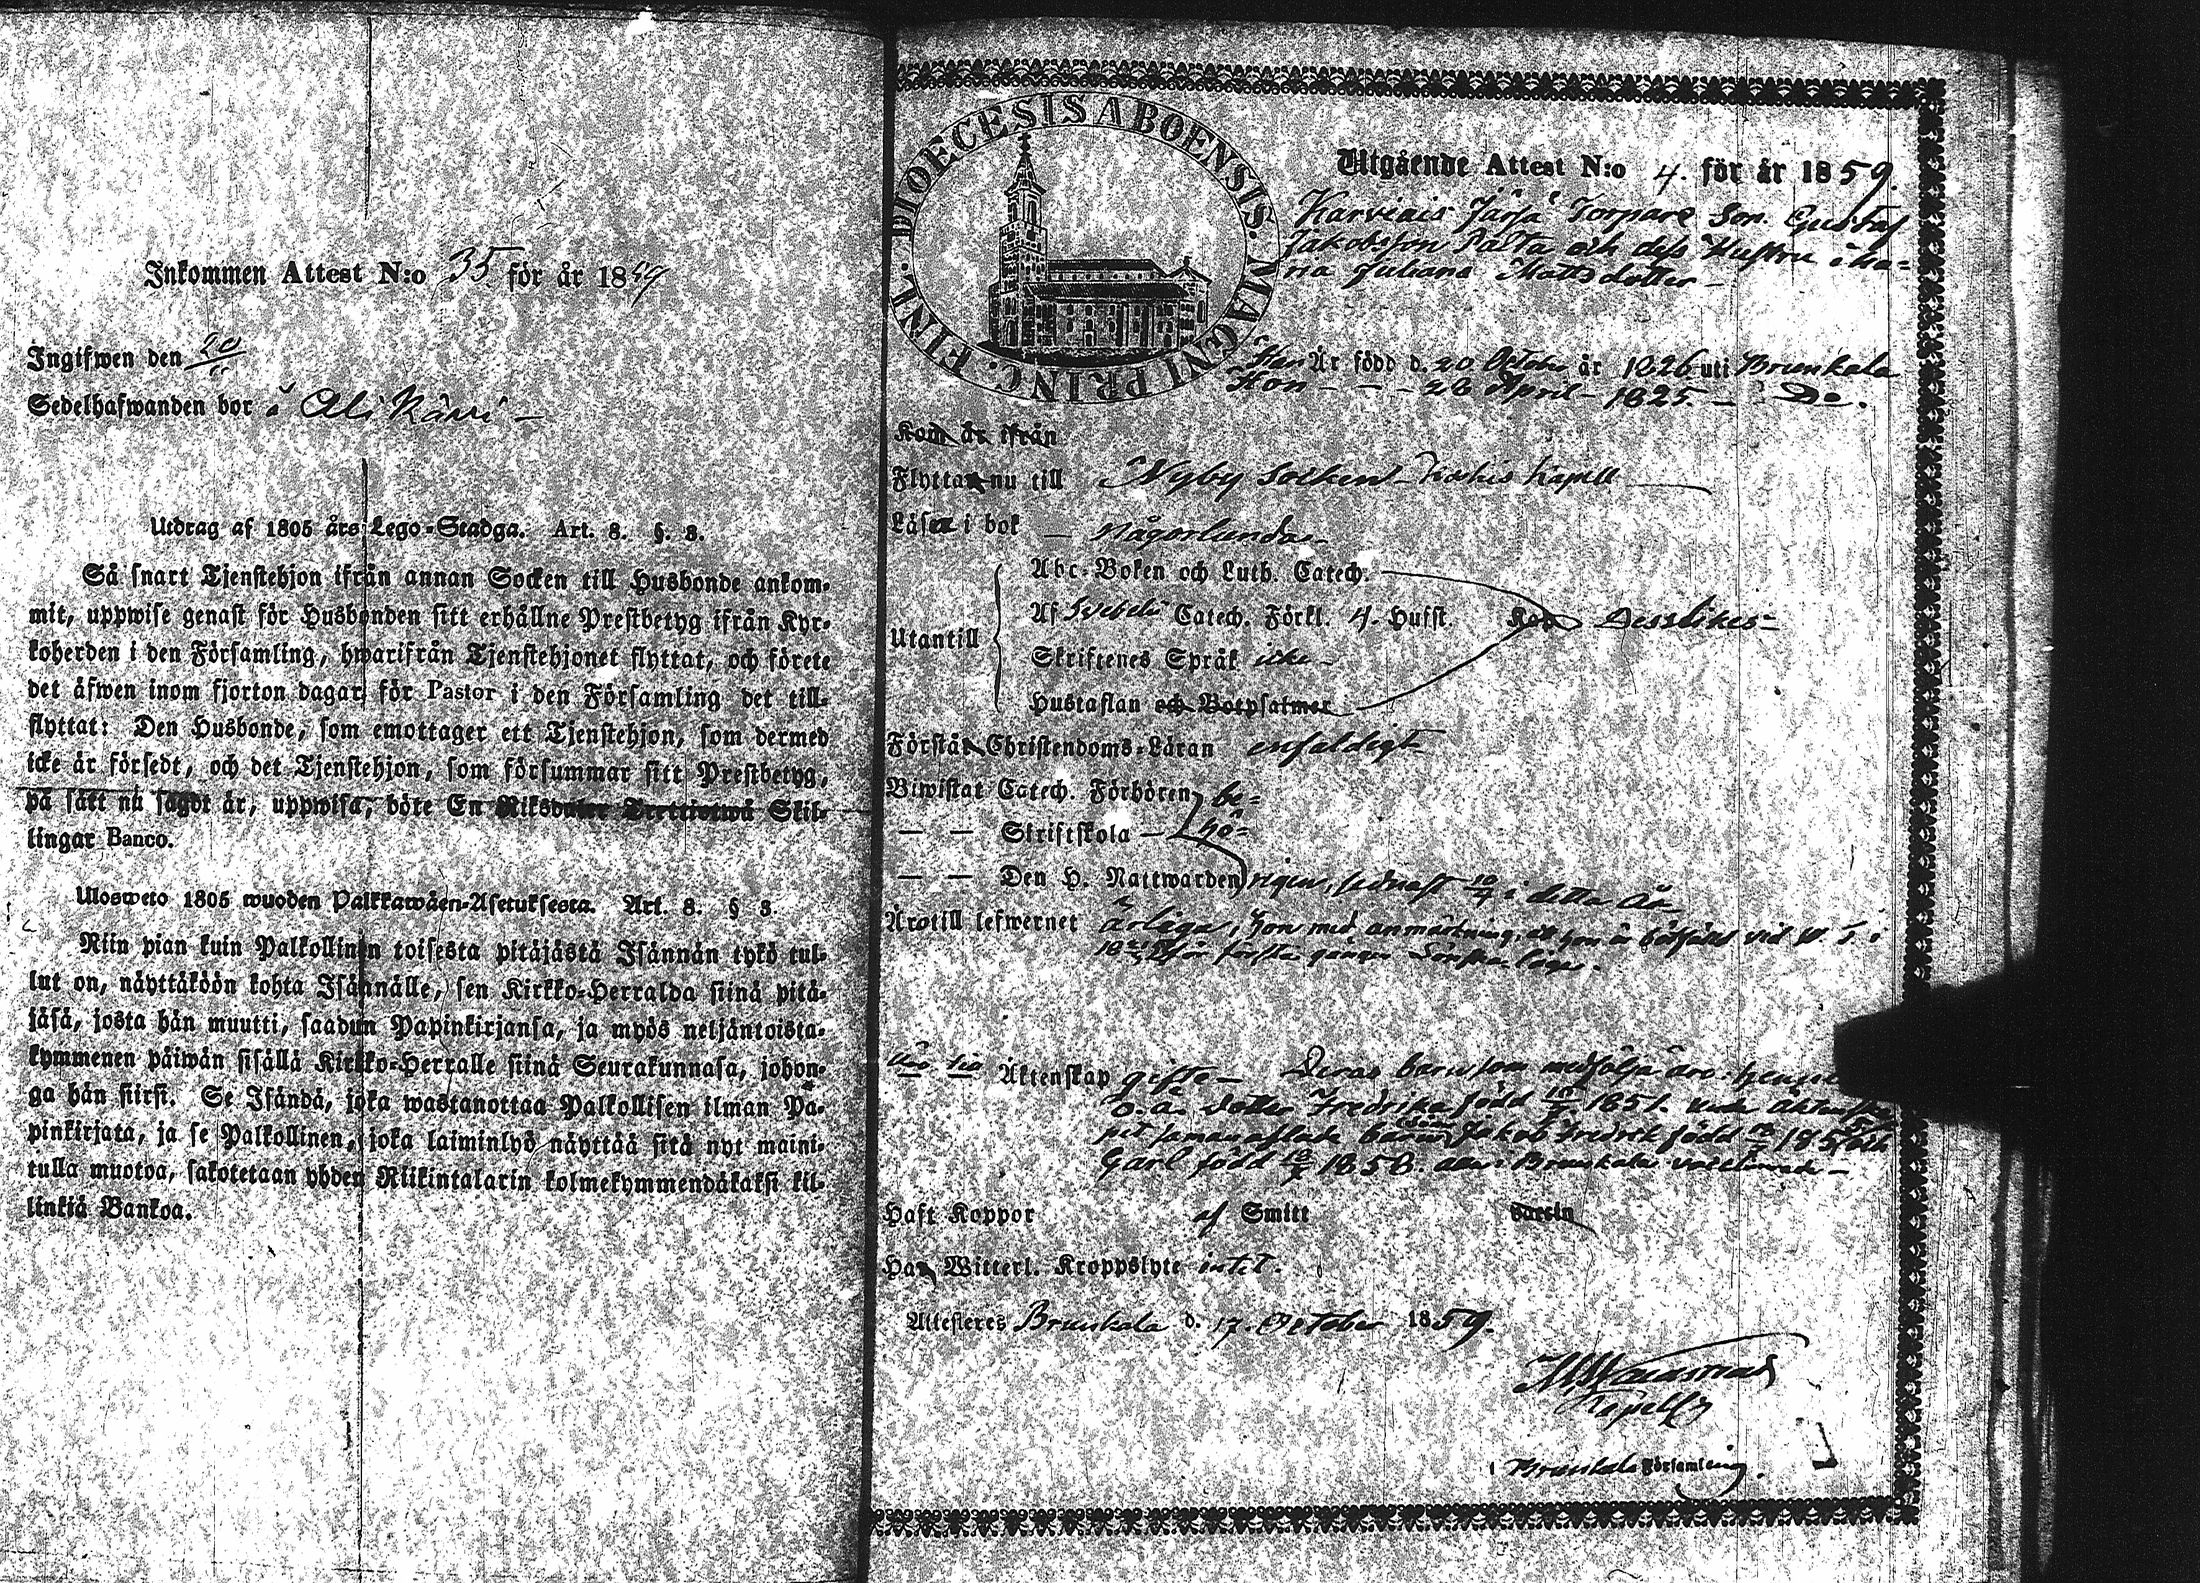 Inkommen Attest N:o 35 för år 1859
Ingifwen den 20
Sedelhafwanden bor å Ali Kärri
Utdrag af 1805 års Lego-Stadga. Art. 8. §. 3.
Så snart Tjenstehjon ifrån annan Socken till Husbonde ankom-
mit, uppwise genast för Husbonden sitt erhållne Prestbetyg ifrån Kyr-
koherden i den Församling, hwarifrån Tjenstehjonet flyttat, och förete
det äfwen inom fjorton dagar för Pastor i den Församling det till-
flyttat: Den Husbonde, som emottager ett Tjenstehjon, som dermed
icke är försedt, och det Tjenstehjon, som försummar sitt Prestbetyg,
på sätt nu sagdt är, uppwisa, böte En Riksdaler Trettiotwå Skil-
lingar Banco.
Ulosweto 1805 wuoden Palkkawäen-Asetuksesta. Art. 8. § 3.
Niin pian kuin Palkollinen toisesta pitäjästä Isännän tykö tul-
lut on, näyttäköön kohta Isännälle, sen Kirkko-Herralda siinä pitä-
jäsä, josta hän muutti, saadun Papinkirjansa, ja myös neljäntoista-
kymmenen päiwän sisällä Kirkko-Herralle siinä Seurakunnasa, johon-
ga hän siirsi. Se Isändä, joka wastanottaa Palkollisen ilman Pa-
pinkirjata, ja se Palkollinen, joka laiminlyö näyttää sitä nyt maini-
tulla muotoa, sakotetaan yhden Riikintalarin kolmekymmendäkaksi kil-
linkiä Bankoa.
DIOECESIS ABOENSIS. MAGNI PRINC. FINL.
Utgående Attest N:o 4. för år 1859.
Karviais Järjä Torpare Son. Gustaf
Jakobsson Palta och dess Hustru
ria Juliana Mattsdotter
Han Är född d. 20 Octob. år 1826 uti Brunkala
Hon - - - 28 April - 1825. - Do.
Kom är ifrån
Flyttar nu till Nyby Socken Koskis Kapell
Läser i bok någorlunda
Abc-Boken och Luth. Catech.
Af Svebelii Catech. Förkl. 4. Hufst. Kan Desslikes
Utantill
Skriftenes Språk icke
Hustaflan och Botpsalmer
Förstår Christendoms-Läran enfaldigt
Biwistat Catech. Förhören be-
— — Skriftskola — hö-
— — Den H. Nattwarden rigen, sednast i detta År
Är till lefwernet ärliga, hon med anmärkning, att hon är
för första gången
Äktenskap gifte - Deras barn som medfölja äro:
o. ä. dotter Fredrika född 1851.
Jakob Fredrik född
Carl född 1858.
Haft Koppor af Smitt Vaccin
Har Witterl. Kroppslyte intet.
Attesteres Brunkala d. 17. October 1859.
i Brunkala Församling.